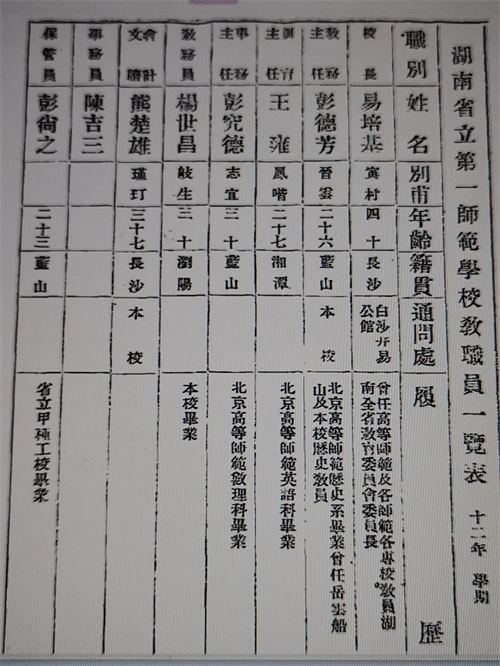 湖南省立第一師範學校教職員一覽表 十二年 學期
職別 姓名 別甫 年齡 籍貫 通問處 履歷
校長 易培基 寅村 四十 長沙 白沙井易公館 曾任高等師範及各師範各專校教員湖南全省教育委員會委員長
教務主任 彭德芳 晉雲 二十六 藍山 本校 北京高等師範歷史系畢業曾任岳雲船山及本校歷史教員
訓育主任 王雍 鳳喈 二十七 湘潭 北京高等師範英語科畢業
事務主任 彭究德 志宜 三十 藍山 北京高等師範數理科畢業
教務員 楊世昌 岐生 三十 瀏陽 本校畢業
會計文牘 熊楚雄 瑾玎 三十七 長沙 本校
事務員 陳吉三
保管員 彭尚之 二十三 藍山 省立甲種工校畢業